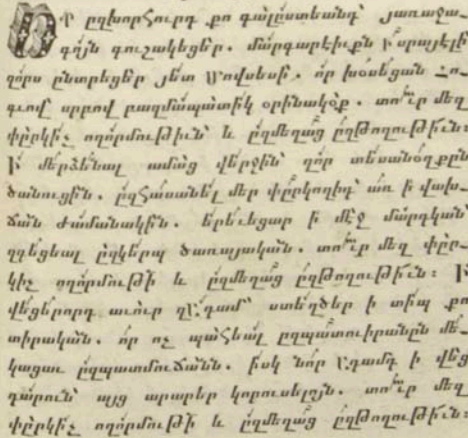 Որ ըզխորհուրդ քո գալըստեանդ՝ յառաջա֊
գոյն գուշակեցեր. մարգարէիւքն Իսրայէլի
զորս ընտրեցեր յետ Մովսեսի, որ խօսեցան հո֊
գւով սրբով բազմապատիկ օրինակօք. տո՛ւր մեզ
փըրկիչ ողորմութիւն՝ և ըզմեղաց ըզթողութիւն:
Ի մերձենալ ամաց վերջին՝ զոր տեսանօղքըն
ծանուցին. ըզհասանել մեր փըրկողիդ՝ առ ի վախ֊
ճան ժամանակին. երեւեցար ի մէջ մարդկան՝
զգեցեալ ըզկերպ ծառայական. տո՛ւր մեզ փըր֊
կիչ ողորմութի և ըզմեղաց ըզթողութիւն: Ի
վեցերորդ աւուր զԱդամ՝ ստեղծեր ի տիպ քո
տիրական. որ ոչ պահեալ ըզպատուիրանըն մե֊
կացաւ ըզպատմուճանն. իսկ նոր Ադամդ ի վեց
դարուն՝ այց արարեր կորուսելոյն. տո՛ւր մեզ
փըրկիչ ողորմութի և ըզմեղաց ըզթողութիւն: